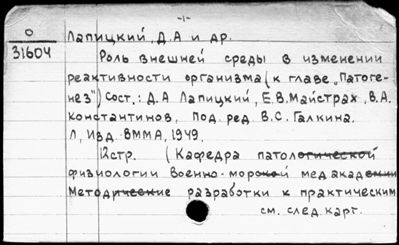 -1-
О Лапицкий, Д.А и др.
31604
Роль внешней среды в изменении
реактивности организма (к главе „Патоге-
нез") Сост.: Д.А Лапицкий, Е.В.Майстрах, В.А.
Константинов, Под ред В.С. Галкина.
Л, Изд ВММА, 1949.
12стр. (Кафедра патологической
физиологии Военно-морской мед академии
Методические разработки к практическим
см. след. карт.